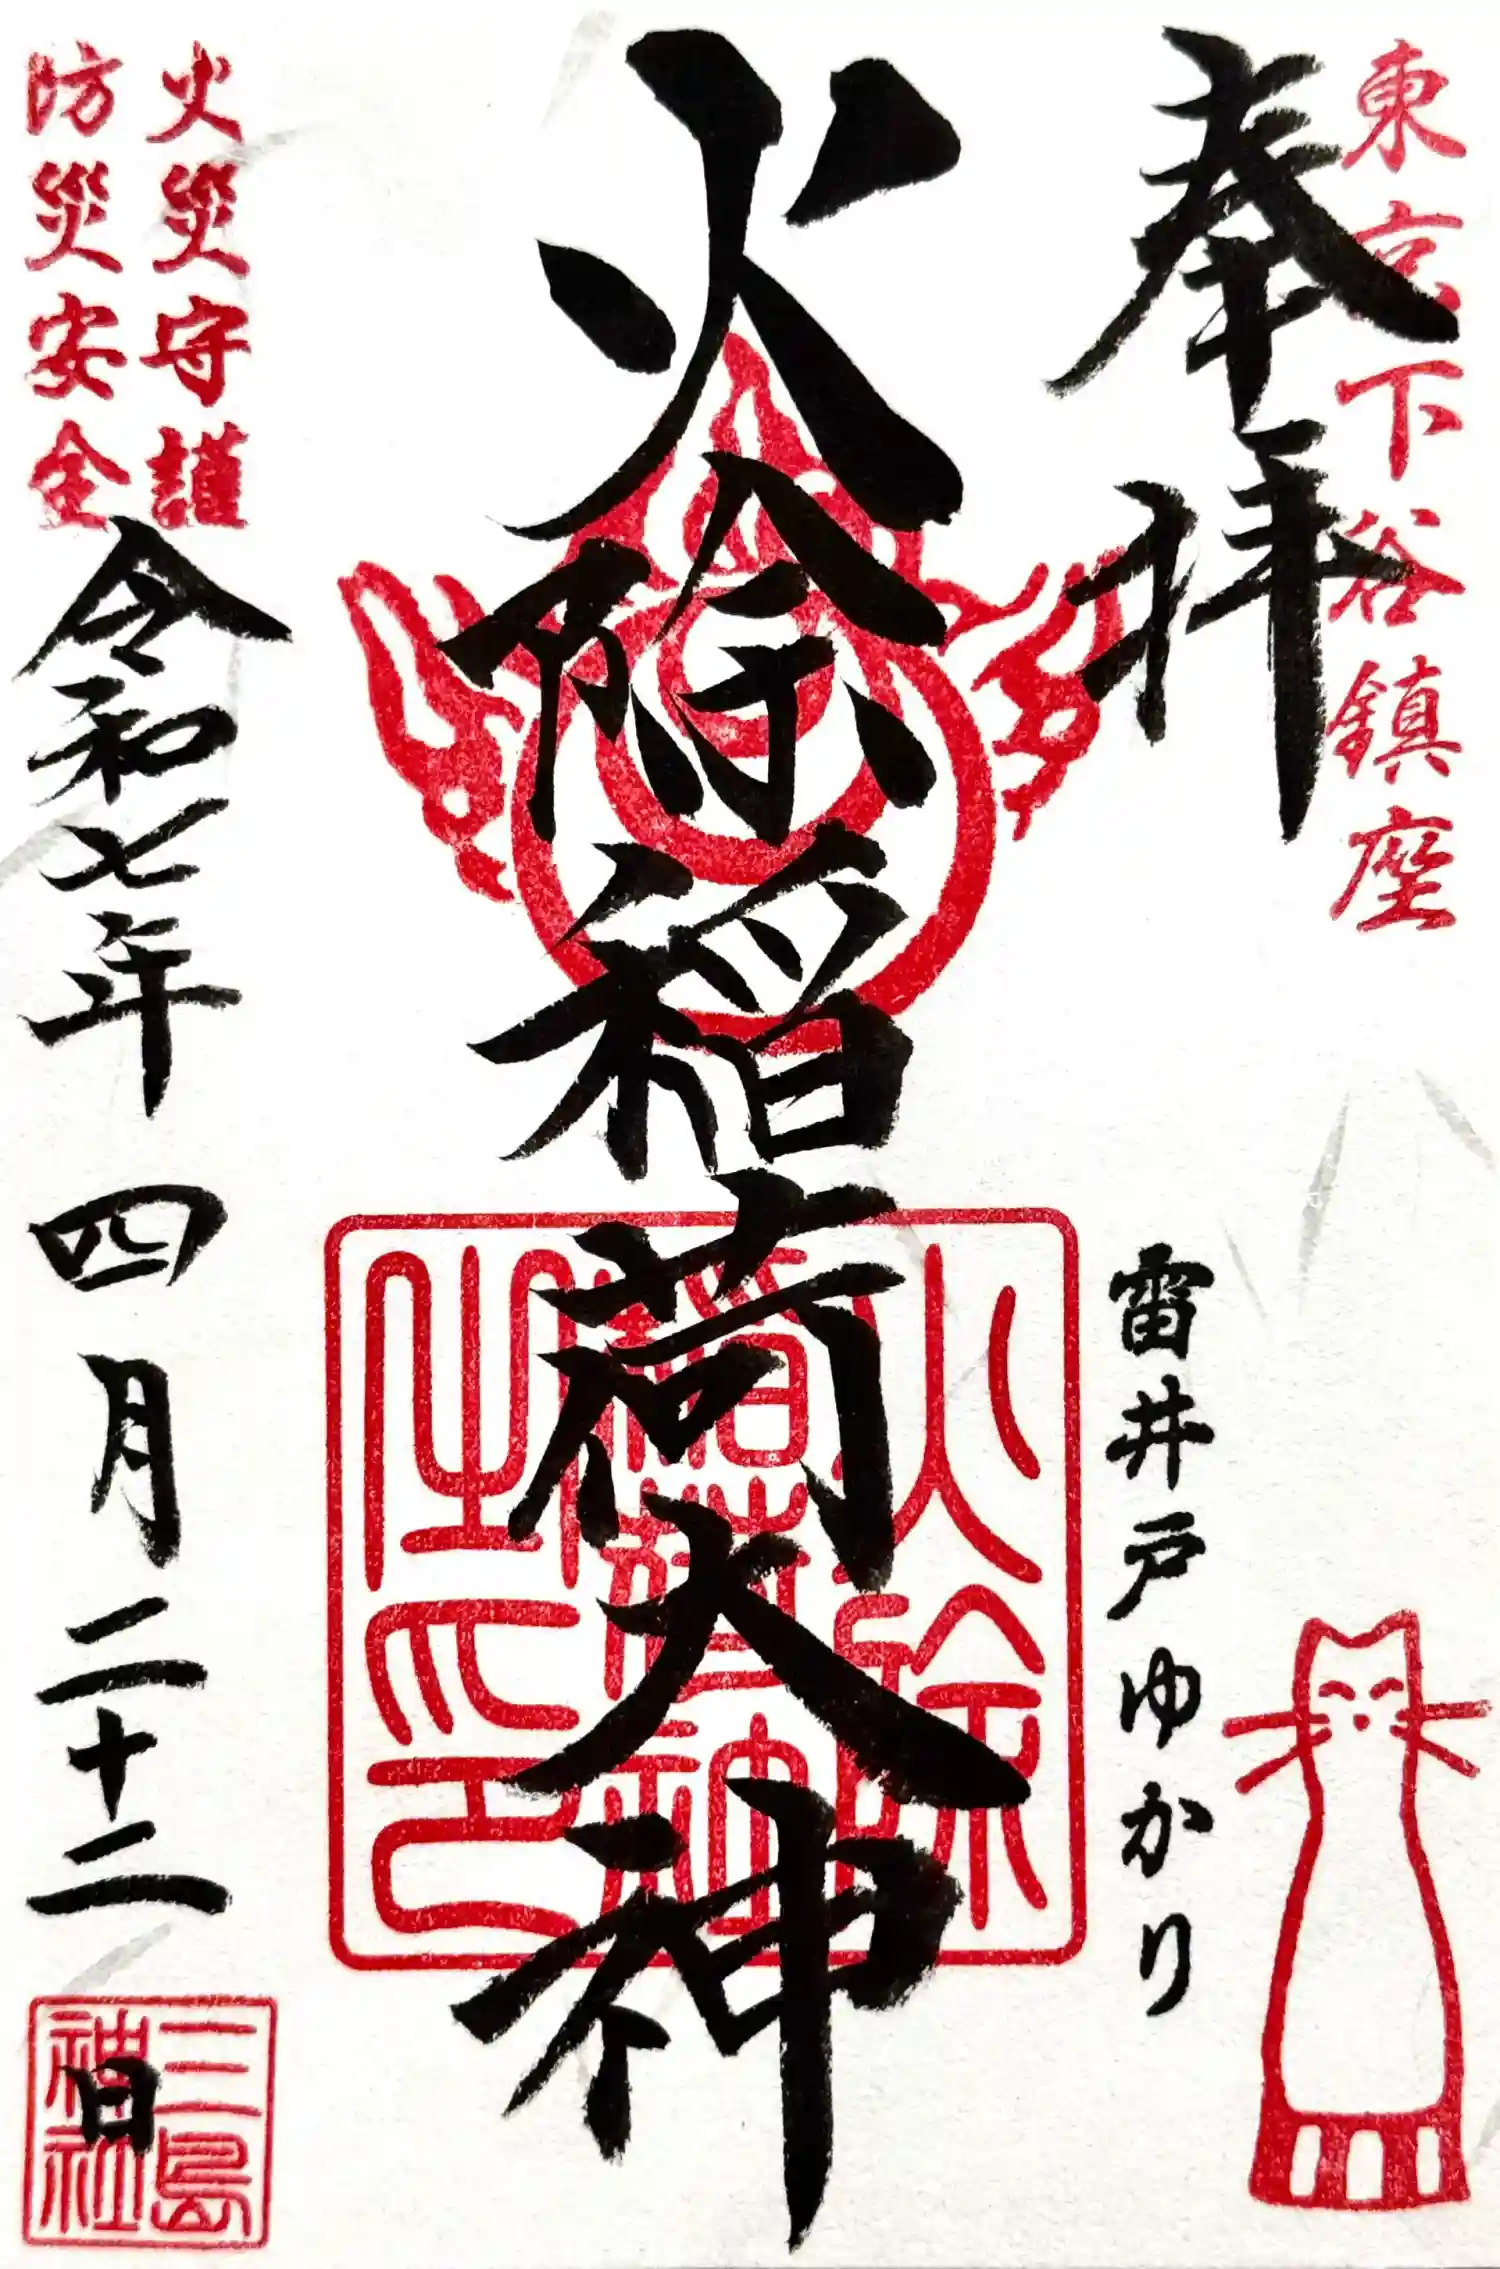 東京下谷鎮座
奉拝
雷井戸ゆかり
火除稲荷大神
火除
稲荷大神
之印
火災守護
防災安全
令和七年四月二十二日
三島
神社